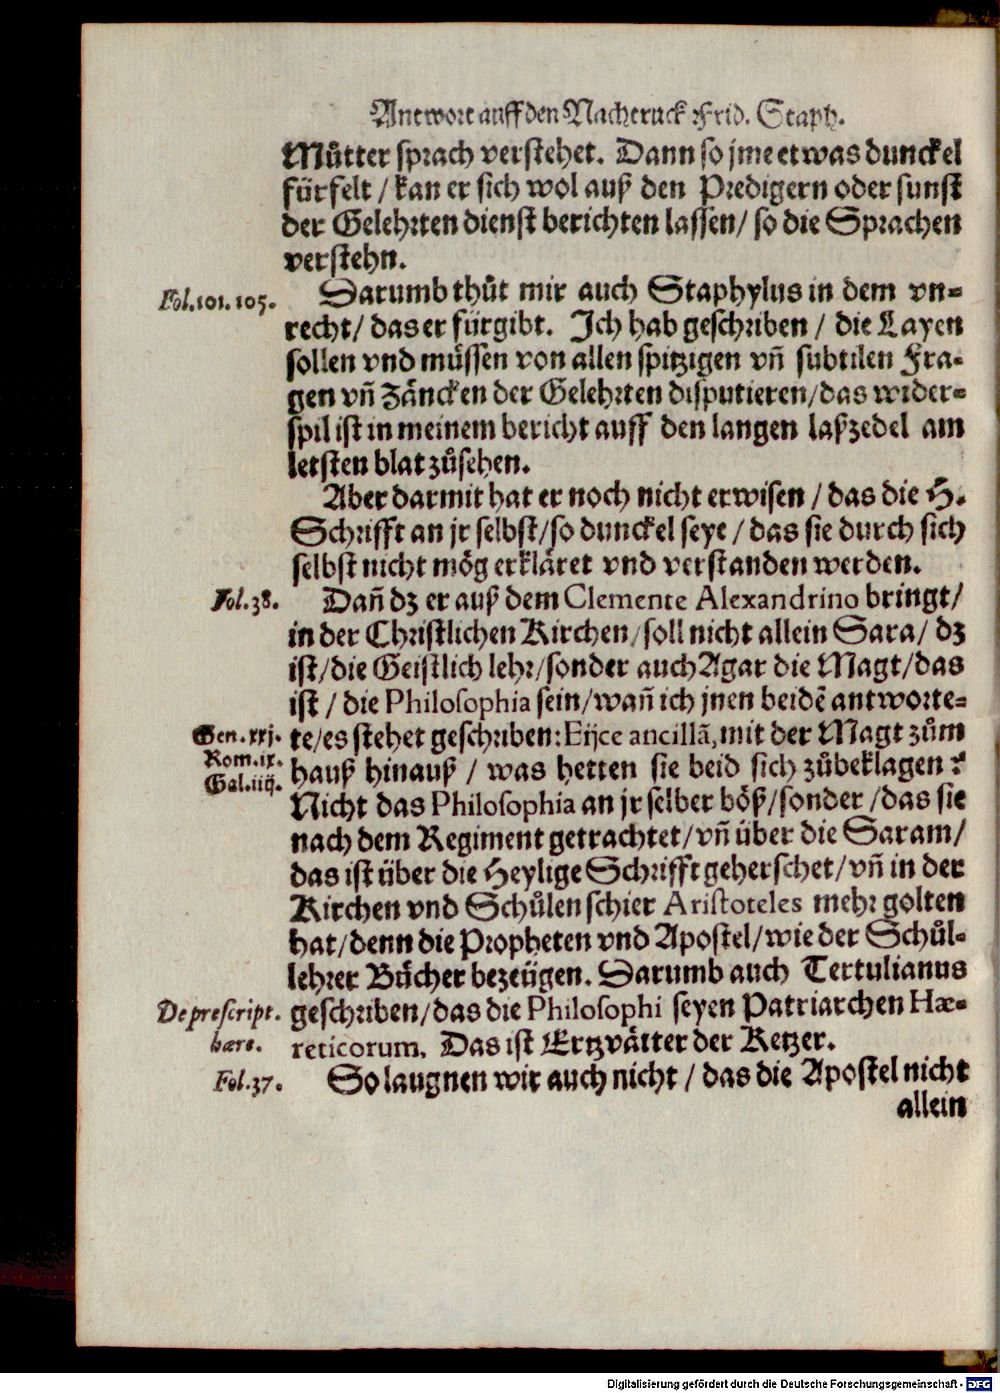 Antwort auff den Nachtruck Frid. Staph.
Můtter sprach verstehet. Dann so jme etwas dunckel
fürfelt / kan er sich wol auß den Predigern oder sunst
der Gelehrten dienst berichten lassen / so die Sprachen
verstehn.
Fol. 101. 105.
Darumb thůt mir auch Staphylus in dem vn-
recht / das er fürgibt. Ich hab geschriben / die Layen
sollen vnd müssen von allen spitzigen vñ subtilen Fra-
gen vñ Zäncken der Gelehrten disputieren / das wider-
spil ist in meinem bericht auff den langen laßzedel am
letsten blat zůsehen.
Aber darmit hat er noch nicht erwisen / das die H.
Schrifft an jr selbst / so dunckel seye / das sie durch sich
selbst nicht mög erkläret vnd verstanden werden.
Fol. 38.
Dañ dz er auß dem Clemente Alexandrino bringt /
in der Christlichen Kirchen / soll nicht allein Sara / dz
ist / die Geistlich lehr / sonder auch Agar die Magt / das
ist / die Philosophia sein / wañ ich jnen beidē antworte-
Gen. xxj.
te / es stehet geschriben: Eijce ancillã, mit der Magt zům
Rom. ix.
hauß hinauß / was hetten sie beid sich zůbeklagen?
Gal. iiij.
Nicht das Philosophia an jr selber böß / sonder / das sie
nach dem Regiment getrachtet / vñ über die Saram /
das ist über die Heylige Schrifft geherschet / vñ in der
Kirchen vnd Schůlen schier Aristoteles mehr golten
hat / denn die Propheten vnd Apostel / wie der Schůl-
lehrer Bücher bezeügen. Darumb auch Tertulianus
De prescript.
geschriben / das die Philosophi seyen Patriarchen Hæ-
hære.
reticorum. Das ist Ertzvätter der Ketzer.
Fol. 37.
So laugnen wir auch nicht / das die Apostel nicht
allein
Digitalisierung gefördert durch die Deutsche Forschungsgemeinschaft - DFG